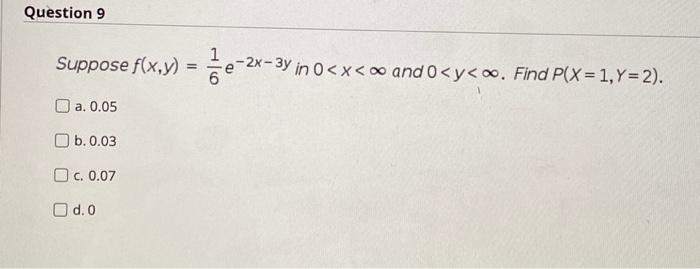 Question 9
Suppose f(x,y) = 1/6 e^-2x-3y in 0<x<∞ and 0<y<∞. Find P(X=1,Y=2).
a. 0.05
b. 0.03
c. 0.07
d. 0